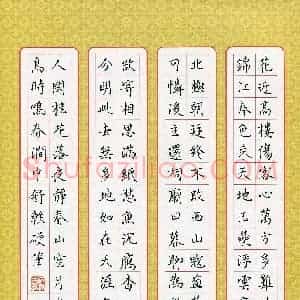 花近高樓傷客心萬方多難
錦江春色來天地玉壘浮雲
北極朝廷終不改西山寇盜
可憐後主還祠廟日暮聊
欲寄相思滿紙愁魚沉雁杳
分明此去無多地如在天涯
人閒桂花落夜靜春山空月
鳥時鳴春澗中